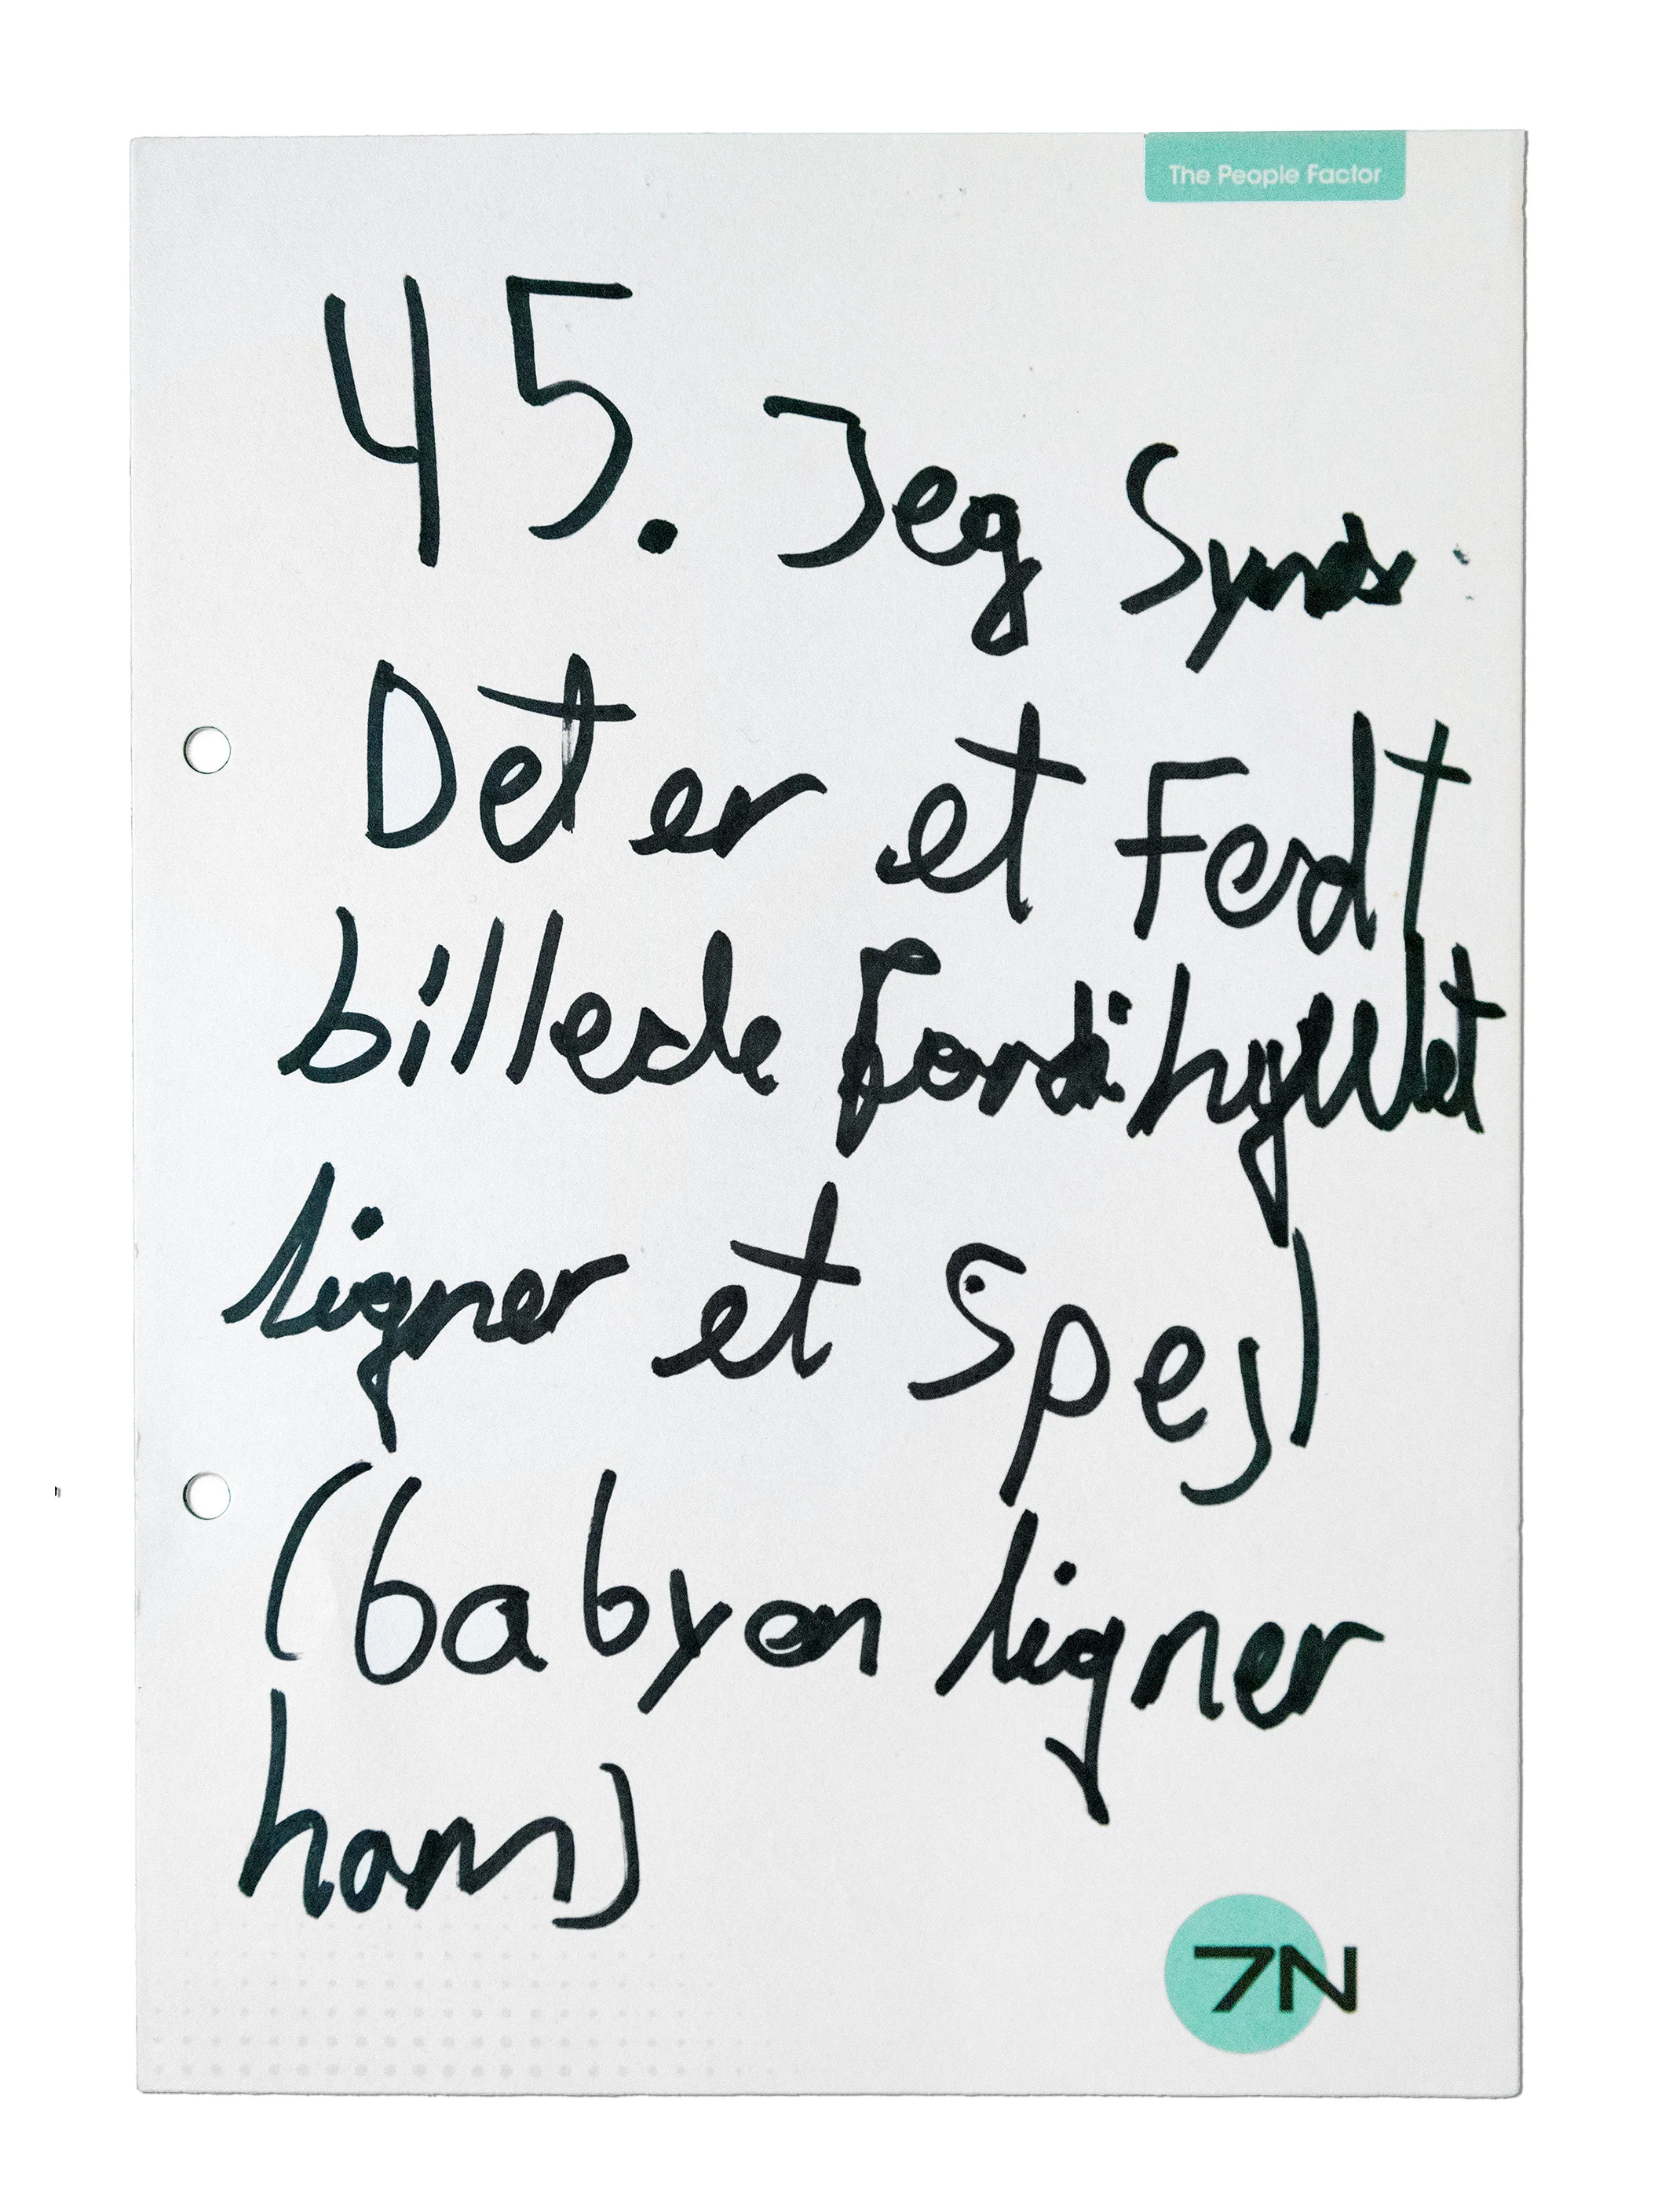 The People Factor
45. Jeg Synds
Det er et Fedt
billede fordi hyllet
ligner et Spejl
(babyen ligner
ham)
7N